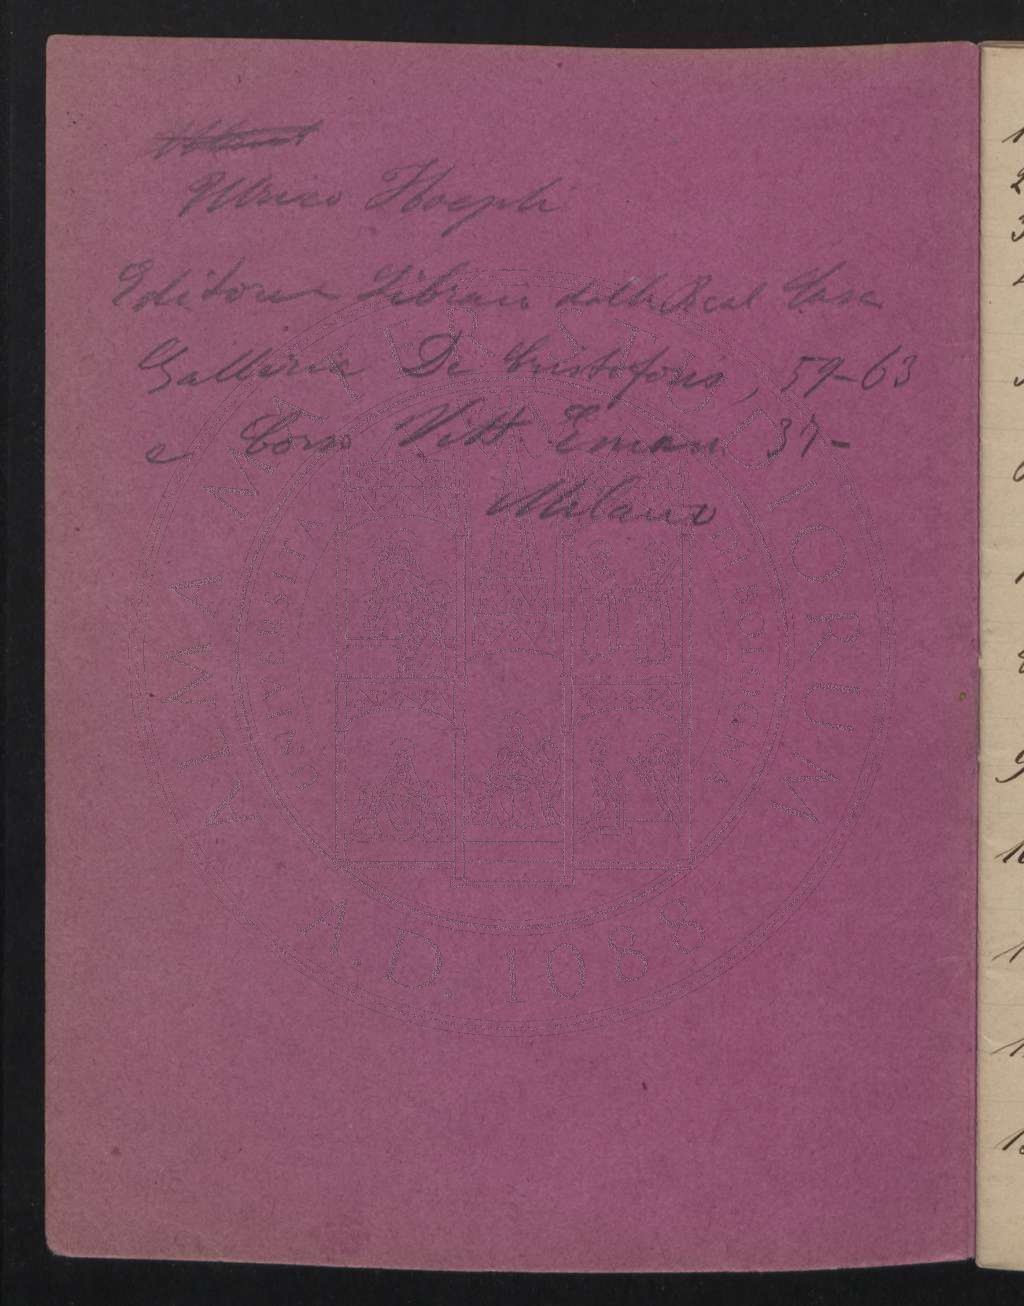 Ulrico Hoepli
Editore Libraio della Real Casa
Galleria De Cristoforis, 59-63
e Corso Vitt Eman 37-
Milano
ALMA MATER STUDIORUM
UNIVERSITÀ DI BOLOGNA
A.D. 1088
1
2
3
9
10